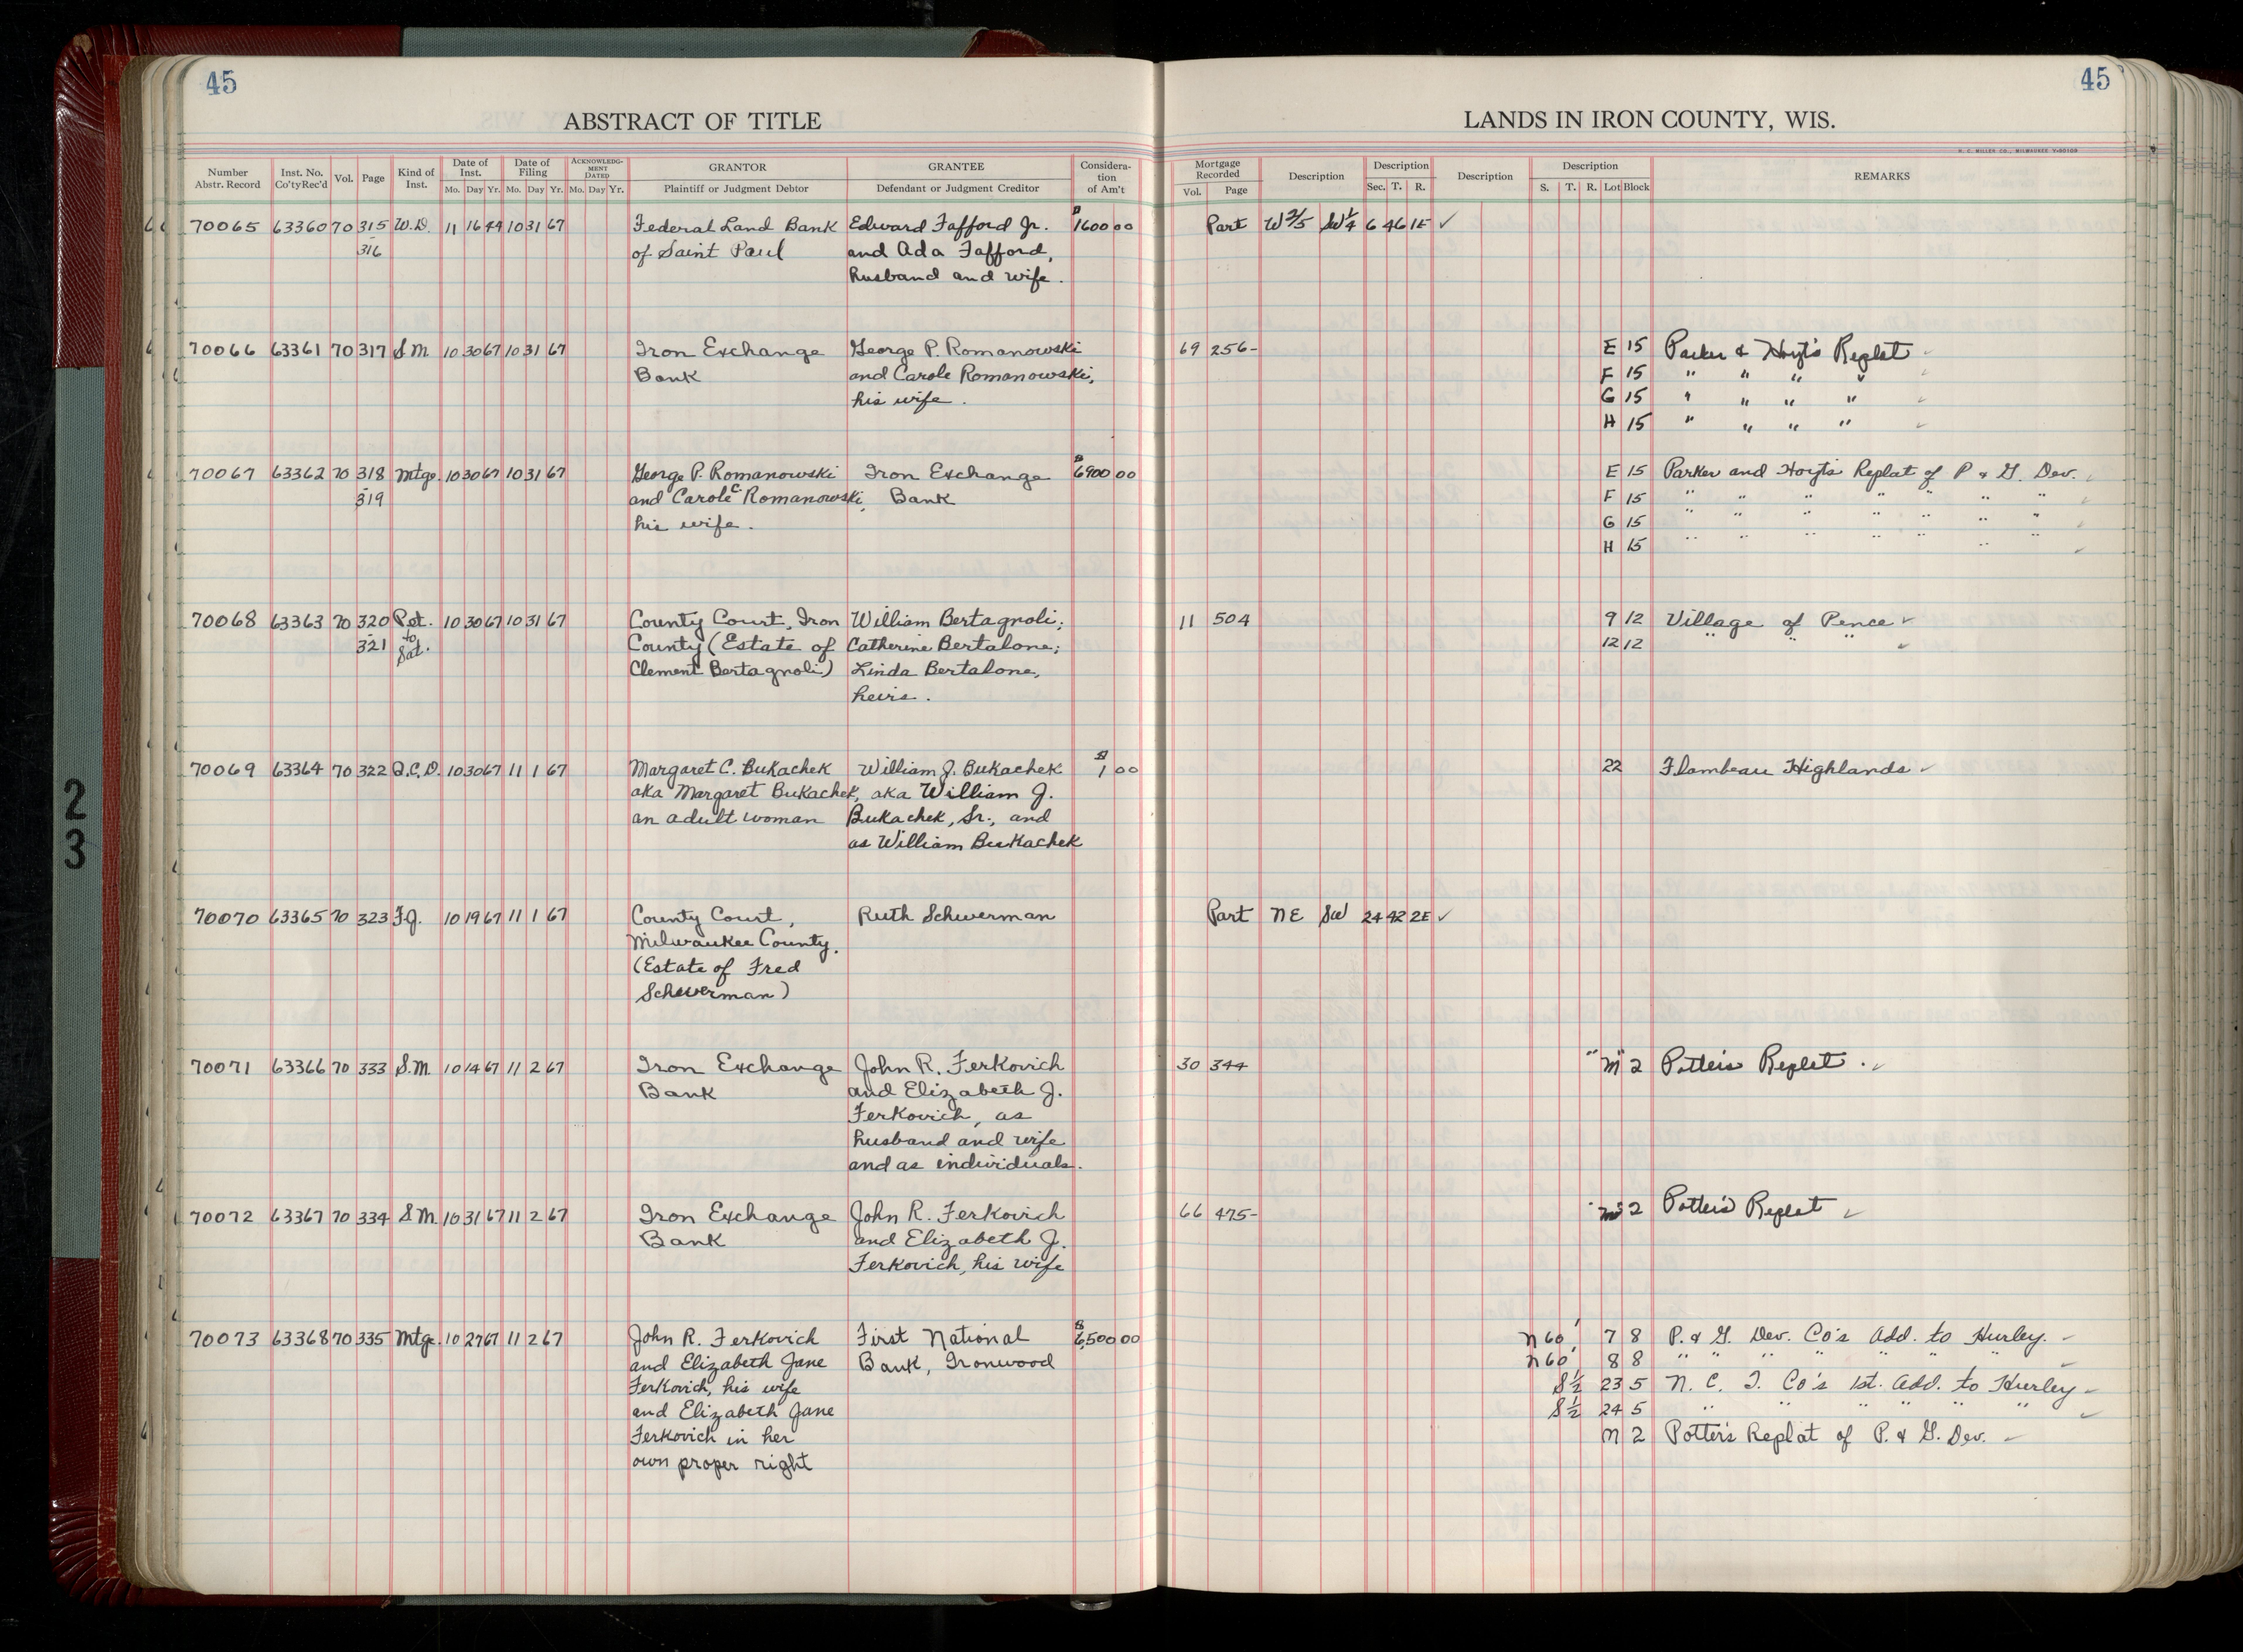 45
45
ABSTRACT OF TITLE
LANDS IN IRON COUNTY, WIS.
H. C. MILLER CO., MILWAUKEE
Number Abstr. Record | Inst. No. Co'tyRec'd | Vol. | Page | Kind of Inst. | Date of Inst. Mo. Day Yr. | Date of Filing Mo. Day Yr. | ACKNOWLEDGMENT DATED Mo. Day Yr. | GRANTOR Plaintiff or Judgment Debtor | GRANTEE Defendant or Judgment Creditor | Consideration of Am't | Mortgage Recorded Vol. Page | Description | Description Sec. T. R. | Description | Description S. T. R. Lot Block | REMARKS
70065 63360 70 315 W.D. 11 16 44 10 31 67 Federal Land Bank Edward Fafford Jr. $1600 00 Part W 2/5 SW 1/4 6 46 1E ✓
-316 of Saint Paul and Ada Fafford,
husband and wife.
70066 63361 70 317 S.M. 10 30 67 10 31 67 Iron Exchange George P. Romanowski 69 256- E 15 Parker & Hoyt's Replat ✓
Bank and Carole Romanowski, F 15 " " " " ✓
his wife. G 15 " " " " ✓
H 15 " " " " ✓
70067 63362 70 318 Mtge. 10 30 67 10 31 67 George P. Romanowski Iron Exchange $6900 00 E 15 Parker and Hoyt's Replat of P & G. Dev. ✓
-319 and Carole C. Romanowski, Bank F 15 " " " " " " " ✓
his wife. G 15 " " " " " " " ✓
H 15 " " " " " " " ✓
70068 63363 70 320 Pet. 10 30 67 10 31 67 County Court, Iron William Bertagnoli; 11 504 9 12 Village of Pence ✓
-321 to Sat. County (Estate of Catherine Bertalone; 12 12 " " " ✓
Clement Bertagnoli) Linda Bertalone,
heirs.
70069 63364 70 322 Q.C.D. 10 30 67 11 1 67 Margaret C. Bukachek William J. Bukachek $1 00 22 Flambeau Highlands ✓
aka Margaret Bukachek, aka William J.
an adult woman Bukachek, Sr., and
as William Bukachek
70070 63365 70 323 F.J. 10 19 67 11 1 67 County Court, Ruth Schwerman Part NE SW 24 42 2E ✓
Milwaukee County.
(Estate of Fred
Schwerman)
70071 63366 70 333 S.M. 10 14 67 11 2 67 Iron Exchange John R. Ferkovich 30 344 "M" 2 Potter's Replat. ✓
Bank and Elizabeth J.
Ferkovich, as
husband and wife
and as individuals.
70072 63367 70 334 S.M. 10 31 67 11 2 67 Iron Exchange John R. Ferkovich 66 475- "M" 2 Potter's Replat ✓
Bank and Elizabeth J.
Ferkovich, his wife
70073 63368 70 335 Mtge. 10 27 67 11 2 67 John R. Ferkovich First National $6,500 00 N 60' 7 8 P. & G. Dev. Co's Add. to Hurley. ✓
and Elizabeth Jane Bank, Ironwood N 60' 8 8 " " " " " " " ✓
Ferkovich, his wife S 1/2 23 5 N. C. I. Co's 1st. Add. to Hurley ✓
and Elizabeth Jane S 1/2 24 5 " " " " " " ✓
Ferkovich in her M 2 Potter's Replat of P. & G. Dev. ✓
own proper right
2
3